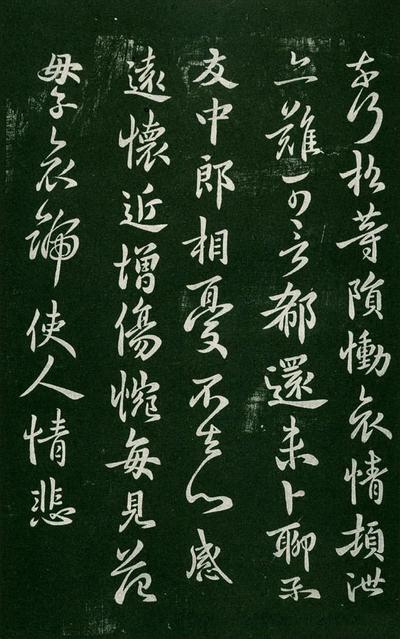 松等隕慟哀情頓泄
難可言郗還未卜聊示
友中郎相憂不去心感
遠懷近增傷惋每見范
母子哀號使人情悲